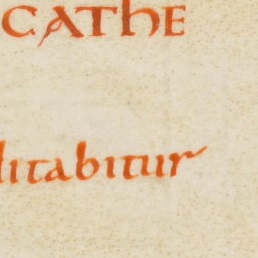 CATHE
litabitur